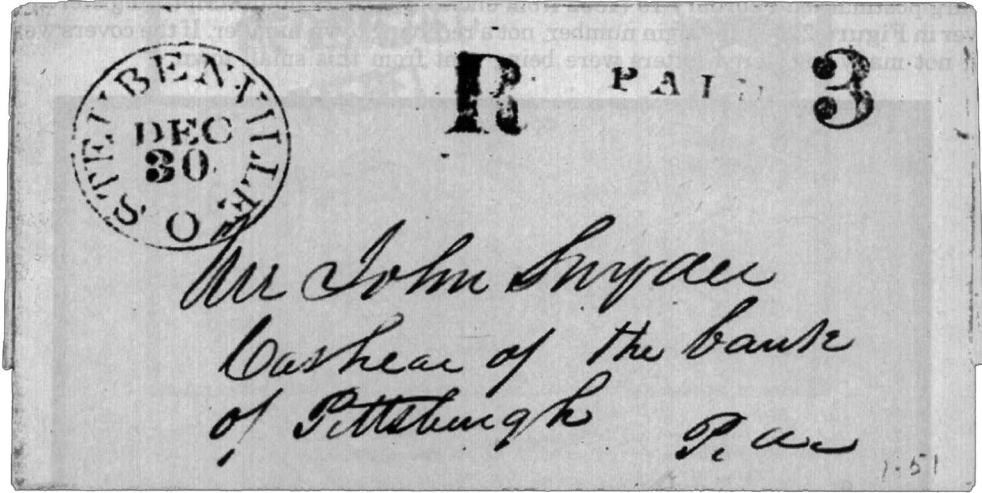 STEUBENVILLE O
DEC
30
R PAID 3
Mr John Snyder
Cashear of the bank
of Pittsburgh
Pa